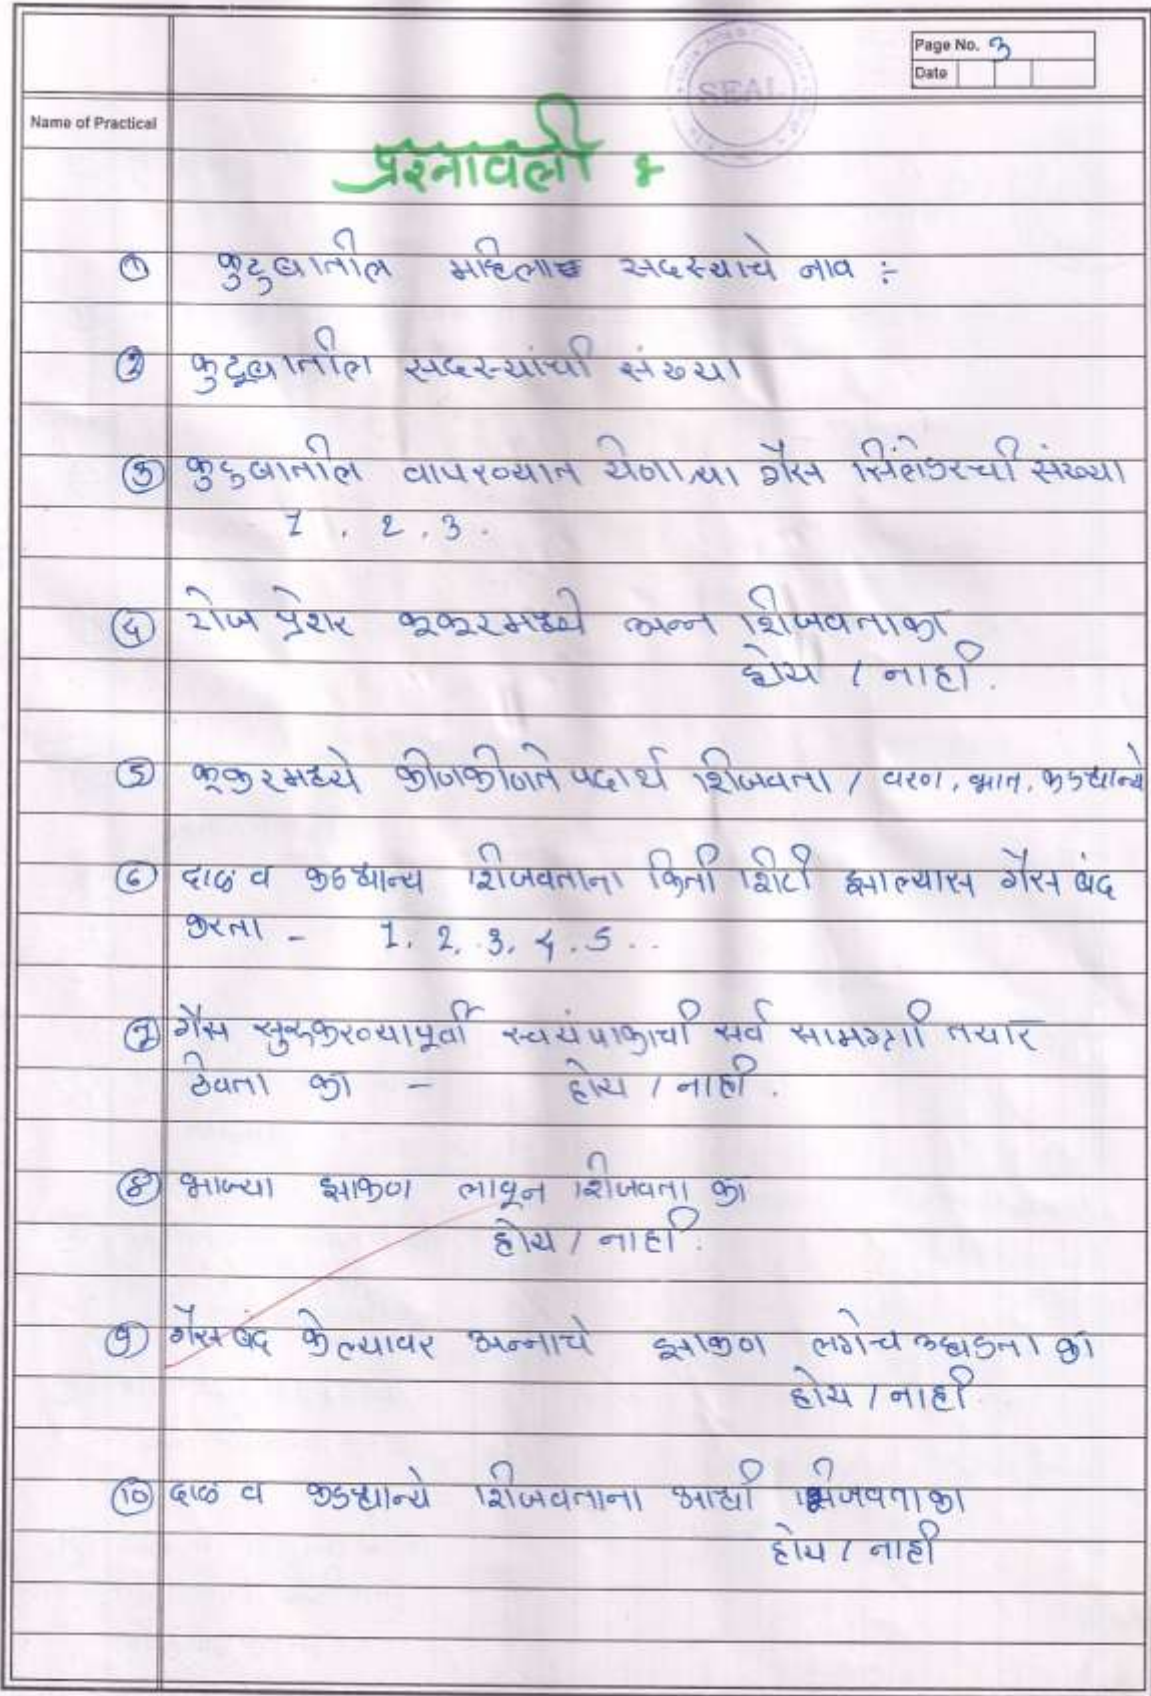 Page No. 3
Date
SEAL
Name of Practical
प्रश्नावली :
① कुटुबातील महिला सदस्याचे नाव :-
② कुटूबातील सदस्यांची संख्या
③ कुटुबातील वापरण्यात येणाऱ्या गॅस सिलेंडरची संख्या
1 . 2 . 3 .
④ रोज प्रेशर कूकरमध्ये अन्न शिजवता का
होय / नाही .
⑤ कूकरमध्ये कोणकोणते पदार्थ शिजवता / वरण, भात, कडधान्ये
⑥ दाळ व कडधान्य शिजवताना किती शिटी झाल्यास गॅस बंद
करता - 1. 2. 3. 4. 5 ..
⑦ गॅस सुरुकरण्यापूर्वी स्वयंपाकाची सर्व सामग्री तयार
ठेवता का - होय / नाही .
⑧ भाज्या झाकण लावून शिजवता का
होय / नाही .
⑨ गॅस बंद केल्यावर अन्नाचे झाकण लगेच उघडता का
होय / नाही .
⑩ दाळ व कडधान्ये शिजवताना आधी भिजवता का
होय / नाही